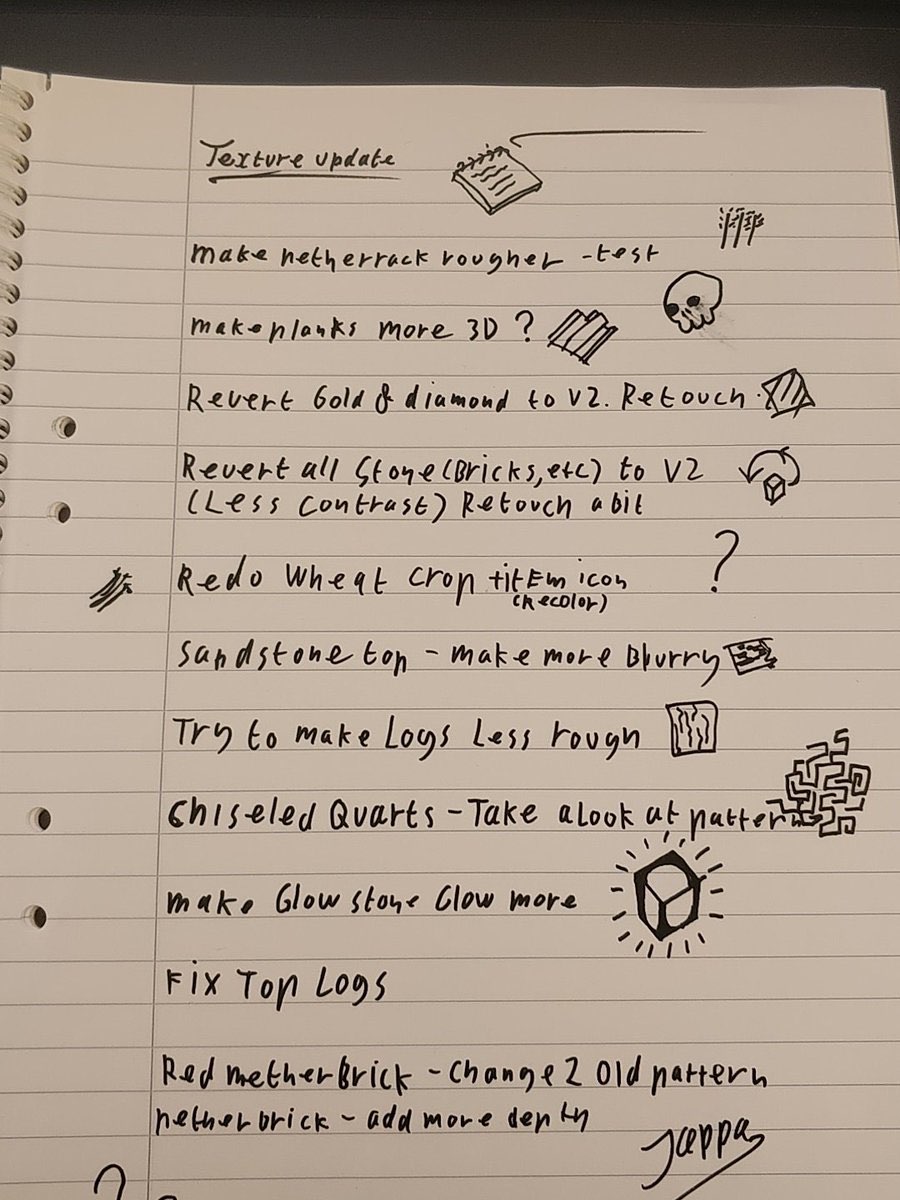 Texture update
make netherrack rougher - test
make planks more 3D ?
Revert Gold & diamond to V2. Retouch.
Revert all Stone (Bricks, etc) to V2
(Less Contrast) Retouch a bit
Redo Wheat Crop + itEm icon
(Recolor)
?
Sandstone top - make more Blurry
Try to make Logs Less rough
Chiseled Quarts - Take a Look at pattern
make Glowstone Glow more
Fix Top Logs
Red netherBrick - Change 2 Old pattern
netherbrick - add more depth
Jappa